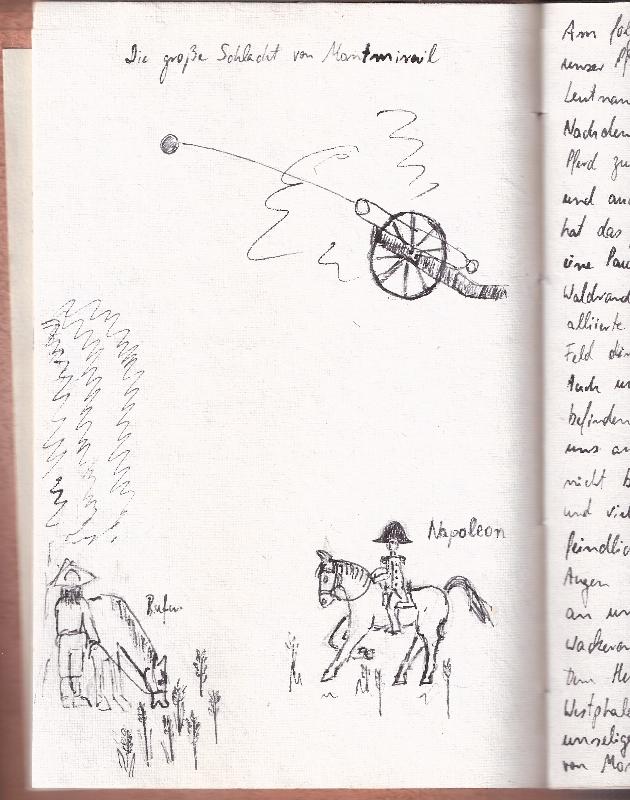 Die große Schlacht von Montmirail
Napoleon
Am
unser
Leutnan
Nachdem
Pferd zu
und
hat das
eine Pau
Waldrand
alliierte
Feld
Auch
befinden
uns
nicht
und viel
feindlic
Augen
an
dem He
Westphal
unselige
von Mon